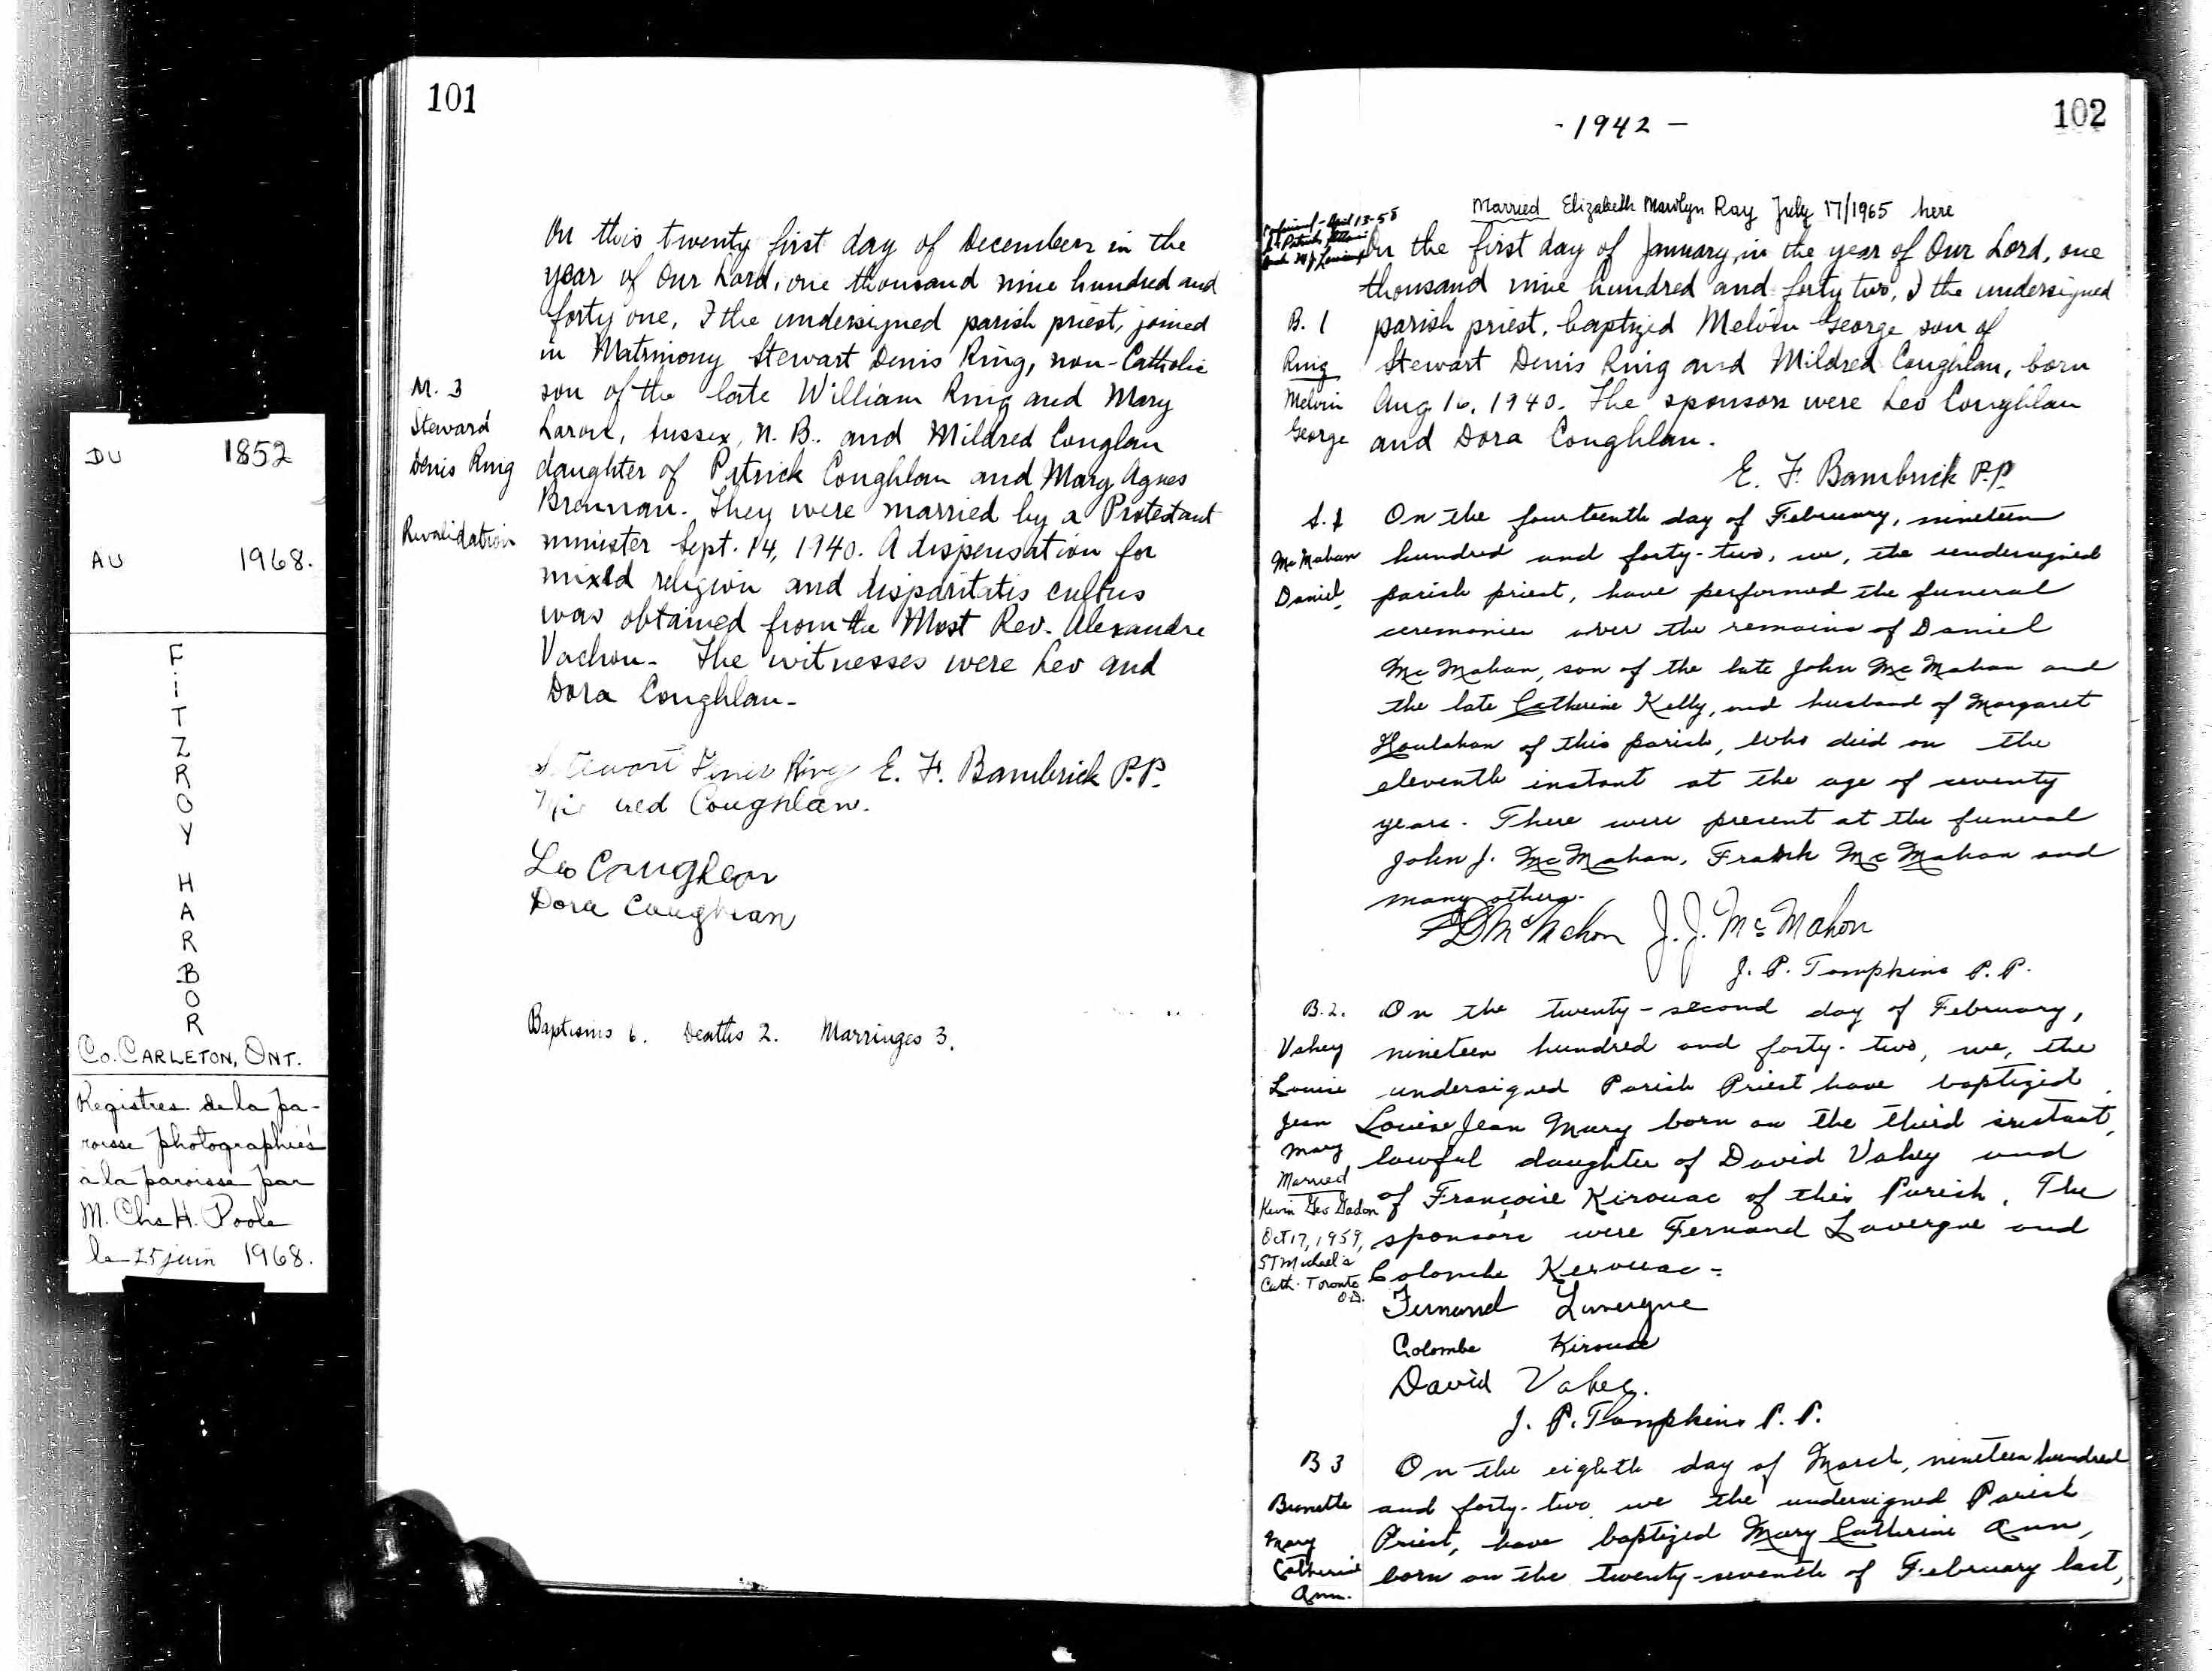 DU 1852
AU 1968.
FITZROY HARBOR
Co. CARLETON, ONT.
Registres de la pa-
roisse photographiés
à la paroisse par
M. Chs H. Poole
le 25 juin 1968.
101
On this twenty first day of December in the
year of Our Lord, one thousand nine hundred and
forty one, I the undersigned parish priest, joined
in Matrimony Stewart Denis Ring, non-Catholic
M. 3 son of the late William Ring and Mary
Steward Sussex, N. B. and Mildred Conglan
Denis Ring daughter of Patrick Coughlan and Mary Agnes
Brennan. They were married by a Protestant
Revalidation minister Sept. 14, 1940. A dispensation for
mixed religion and disparitatis cultus
was obtained from the Most Rev. Alexandre
Vachon. The witnesses were Leo and
Dora Coughlan-
Stewart Denis Ring E. F. Bambrick P.P.
Mildred Coughlan.
Leo Coughlan
Dora Coughlan
Baptisms 6. Deaths 2. Marriages 3.
102
- 1942 -
Married Elizabeth Marilyn Ray July 17/1965 here
April 13-58
On the first day of January, in the year of Our Lord, one
thousand nine hundred and forty two, I the undersigned
B. 1 parish priest, baptized Melvin George son of
Ring Stewart Denis Ring and Mildred Coughlan, born
Melvin Aug 16, 1940. The sponsors were Leo Coughlan
George and Dora Coughlan.
E. F. Bambrick P.P.
S. 1 On the fourteenth day of February, nineteen
McMahan hundred and forty-two, we, the undersigned
Daniel, parish priest, have performed the funeral
ceremonies over the remains of Daniel
McMahan, son of the late John McMahan and
the late Catherine Kelly, and husband of Margaret
Houlahan of this parish, who died on the
eleventh instant at the age of seventy
years. There were present at the funeral
John J. McMahan, Frank McMahan and
many others.
McMahon J. J. McMahon
J. P. Tompkins P. P.
B. 2. On the twenty-second day of February,
Vahey nineteen hundred and forty-two, we, the
Louise undersigned Parish Priest have baptized
Jean Louise Jean Mary born on the third instant,
Mary lawful daughter of David Vahey and
Married of Françoise Kirouac of this Parish. The
Kevin Geo Gadon
Oct 17, 1959, sponsors were Fernand Lavergne and
St Michael's
Cath. Toronto Colombe Kerouac-
O.D.
Fernand Lavergne
Colombe Kirouac
David Vahey.
J. P. Tompkins P. P.
B 3 On the eighth day of March, nineteen hundred
Brunette and forty-two we the undersigned Parish
Mary Priest, have baptized Mary Catherine Ann,
Catherine born on the twenty-seventh of February last,
Ann.